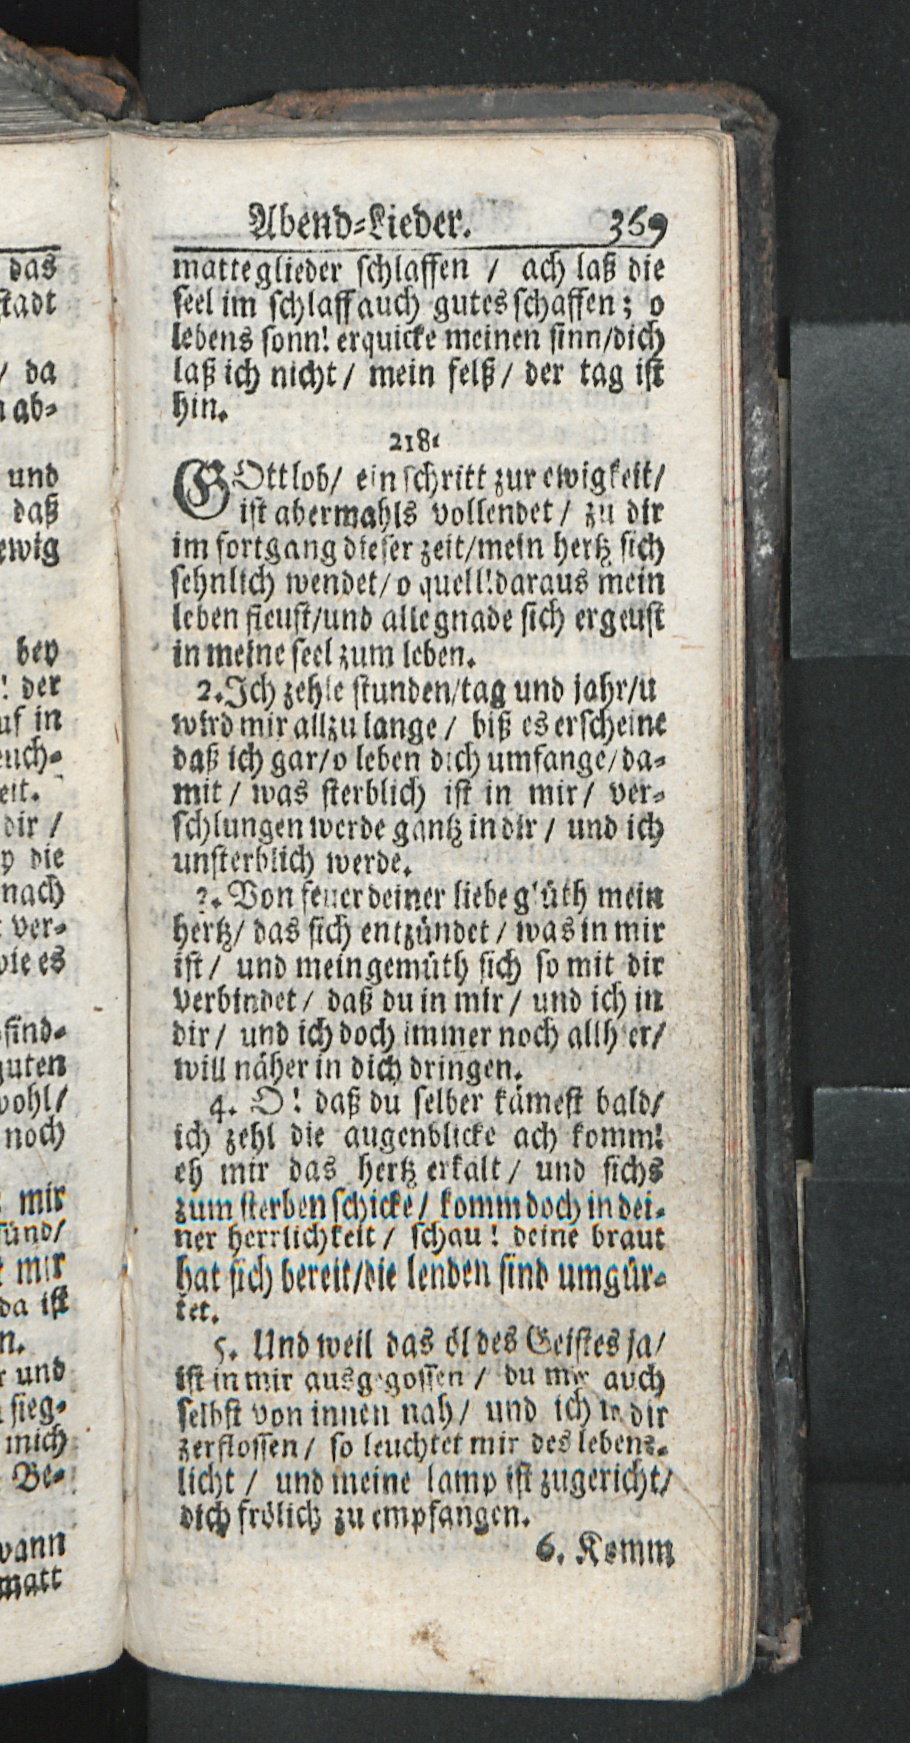 das
stadt
/ da
ab-
und
daß
ewig
bey
! der
uf in
euch-
eit.
dir /
die
nach
ver-
wie es
find-
guten
wohl/
noch
mir
sünd/
mir
da ist
n.
und
sieg-
mich
Be-
wann
matt
Abend-Lieder. 369
matte glieder schlaffen / ach laß die
seel im schlaff auch gutes schaffen; o
lebens sonn! erquicke meinen sinn/dich
laß ich nicht / mein felß / der tag ist
hin.
218.
GOtt lob/ ein schritt zur ewigkeit/
ist abermahls vollendet / zu dir
im fortgang dieser zeit/mein hertz sich
sehnlich wendet/o quell!daraus mein
leben fleust/und alle gnade sich ergeust
in meine seel zum leben.
2. Ich zehle stunden/tag und jahr/u
wird mir allzu lange / biß es erscheine
daß ich gar/o leben dich umfange/da-
mit / was sterblich ist in mir / ver-
schlungen werde gantz in dir / und ich
unsterblich werde.
3. Von feuer deiner liebe glüth mein
hertz/ das sich entzündet / was in mir
ist / und mein gemüth sich so mit dir
verbindet / daß du in mir / und ich in
dir / und ich doch immer noch allhier/
will näher in dich dringen.
4. O! daß du selber kämest bald/
ich zehl die augenblicke ach komm!
eh mir das hertz erkalt / und sichs
zum sterben schicke / komm doch in dei-
ner herrlichkeit / schau! deine braut
hat sich bereit/die lenden sind umgür-
tet.
5. Und weil das öl des Geistes ja/
ist in mir ausgegossen / du mir auch
selbst von innen nah/ und ich in dir
zerflossen / so leuchtet mir des lebens-
licht / und meine lamp ist zugericht/
dich frölich zu empfangen.
6. Komm